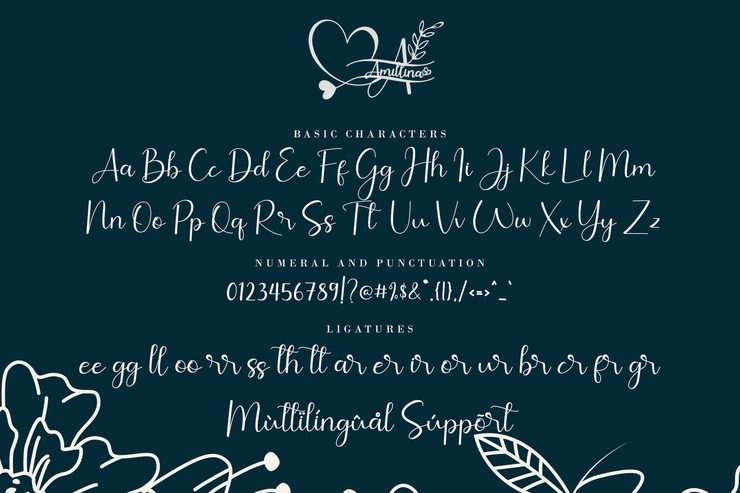 Amillina
BASIC CHARACTERS
Aa Bb Cc Dd Ee Ff Gg Hh Ii Jj Kk Ll Mm
Nn Oo Pp Qq Rr Ss Tt Uu Vv Ww Xx Yy Zz
NUMERAL AND PUNCTUATION
0123456789!?@#%$&*.{|},/<=>^_`
LIGATURES
ee gg ll oo rr ss th tt ar er ir or ur br cr fr gr
Mùltïlíngûål Súppõrt